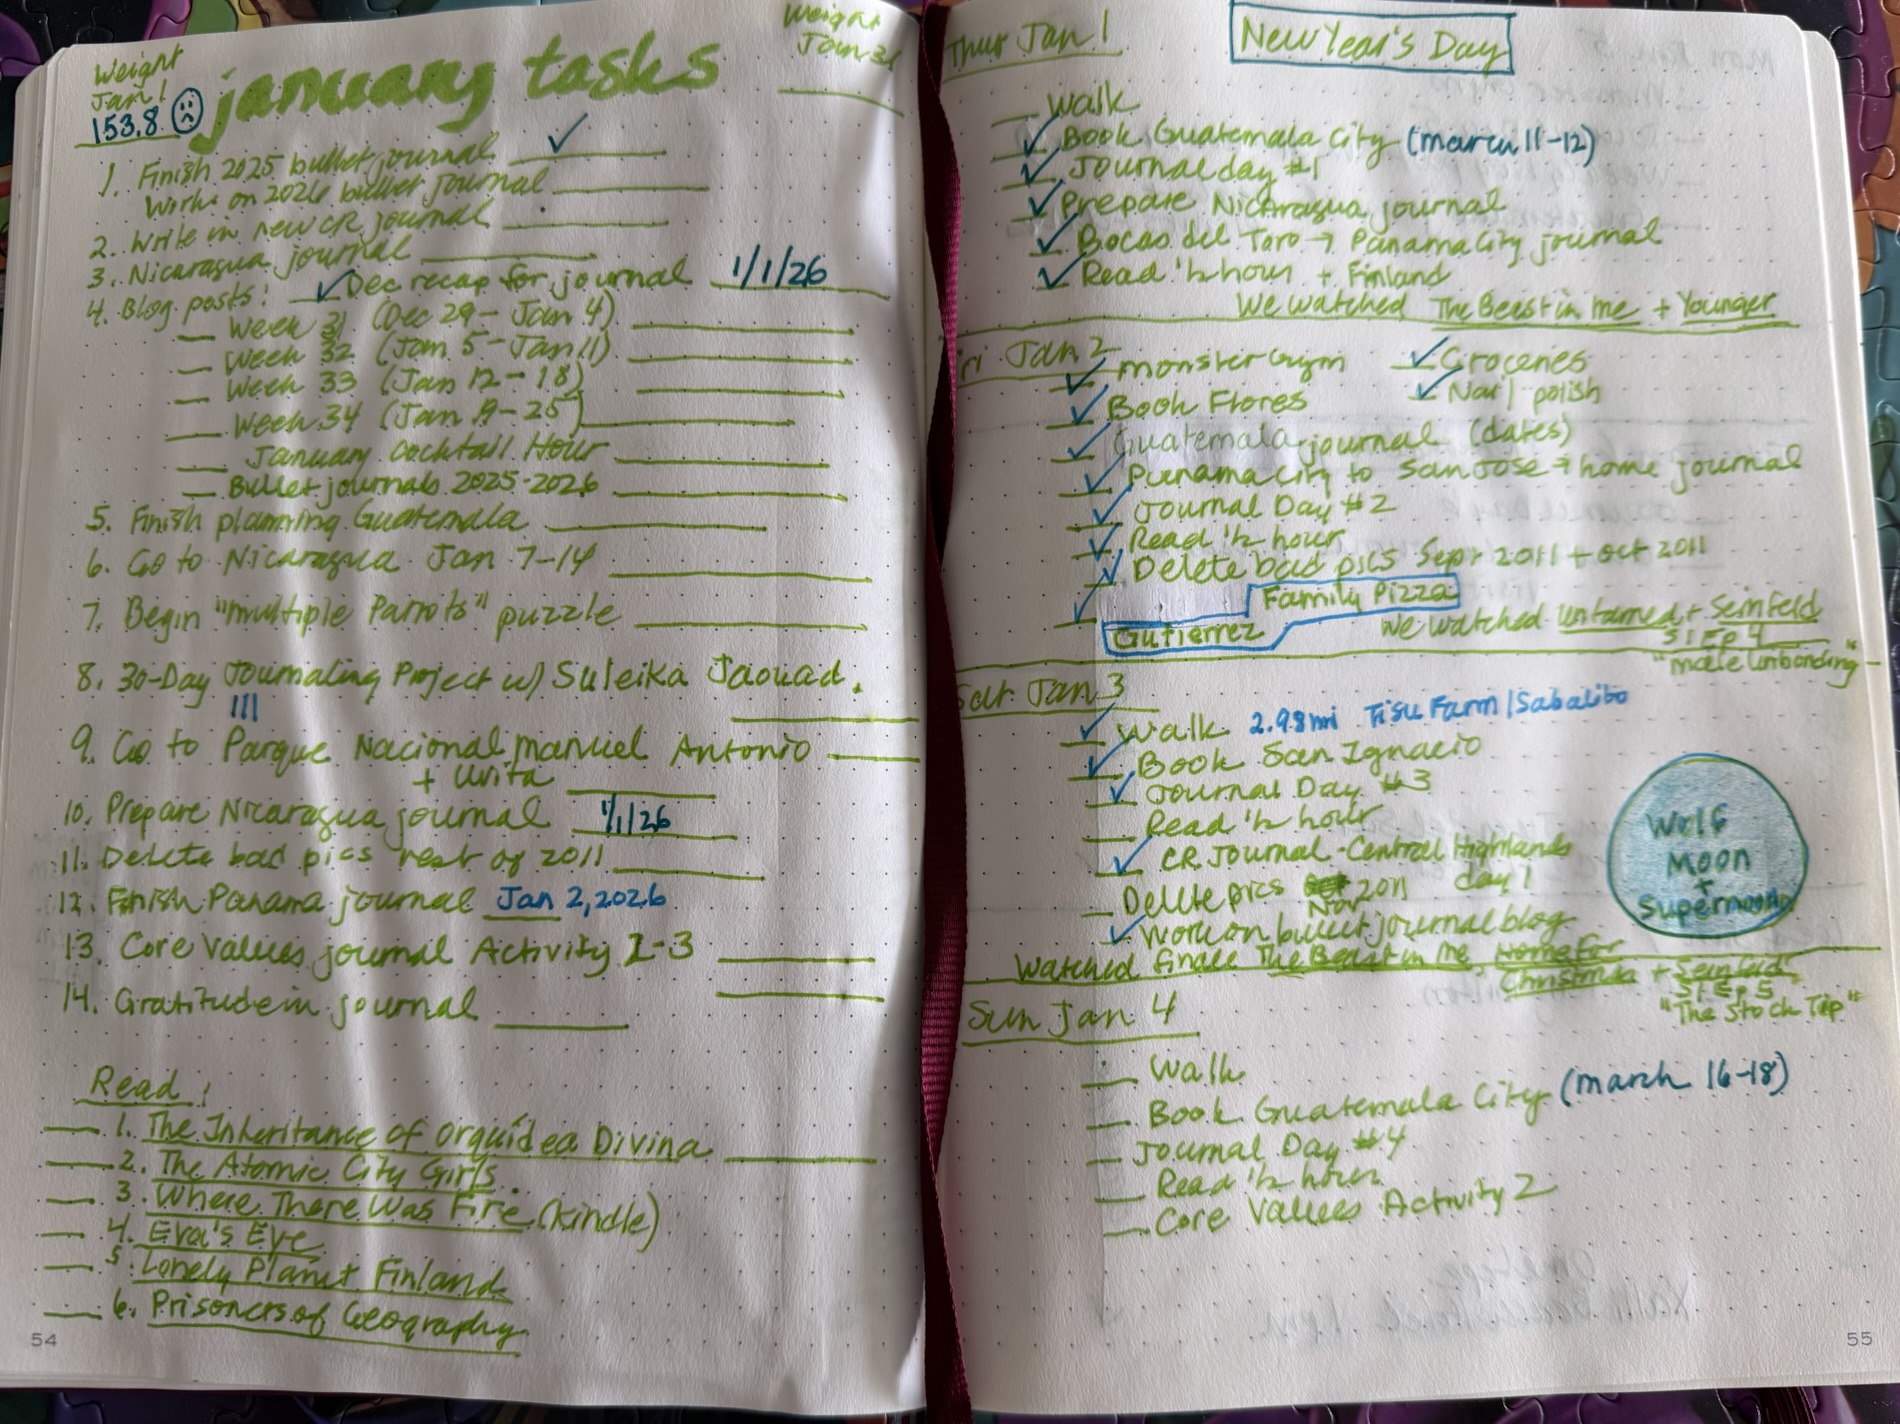 Weight
Jan 1
153.8
january tasks
Weight
Jan 31
1. Finish 2025 bullet journal ✓
Work on 2026 bullet journal
2. Write in new CR journal
3. Nicaragua journal
4. Blog posts: ✓ Dec recap for journal 1/1/26
Week 31 (Dec 29 - Jan 4)
Week 32 (Jan 5 - Jan 11)
Week 33 (Jan 12 - 18)
Week 34 (Jan 19 - 25)
January Cocktail Hour
Bullet journals 2025-2026
5. Finish planning Guatemala
6. Go to Nicaragua Jan 7-14
7. Begin "Multiple Parrots" puzzle
8. 30-Day Journaling Project w/ Suleika Jaouad.
III
9. Go to Parque Nacional Manuel Antonio
+ Uvita
10. Prepare Nicaragua journal 1/1/26
11. Delete bad pics rest of 2011
12. Finish Panama journal Jan 2, 2026
13. Core Values journal Activity 2-3
14. Gratitude in journal
Read:
1. The Inheritance of Orquídea Divina
2. The Atomic City Girls
3. Where There Was Fire (Kindle)
4. Eva's Eye
5. Lonely Planet Finland
6. Prisoners of Geography
54
Thur Jan 1
New Year's Day
Walk
✓ Book Guatemala City (March 11-12)
✓ Journal day #1
✓ Prepare Nicaragua journal
✓ Bocas del Toro → Panama City journal
✓ Read ½ hour + Finland
We watched The Beast in Me + Younger
Fri Jan 2
✓ Monster Gym ✓ Groceries
✓ Book Flores ✓ Nail polish
✓ Guatemala journal (dates)
✓ Panama City to San Jose → home journal
✓ Journal Day #2
✓ Read ½ hour
✓ Delete bad pics Sept 2011 + Oct 2011
✓ Gutierrez Family Pizza
We watched Untamed + Seinfeld
S1 Ep 4
"Male Unbonding"
Sat Jan 3
✓ Walk 2.98 mi Tisu Farm/Sabalito
✓ Book San Ignacio
✓ Journal Day #3
Read ½ hour
✓ CR Journal - Central Highlands
day 1
Delete pics Nov 2011
✓ Work on bullet journal blog
Wolf
Moon
+
Supermoon
Watched finale The Beast in Me, Home For
Christmas + Seinfeld
S1 Ep 5
"The Stock Tip"
Sun Jan 4
Walk
Book Guatemala City (March 16-18)
Journal Day #4
Read ½ hour
Core Values Activity 2
55